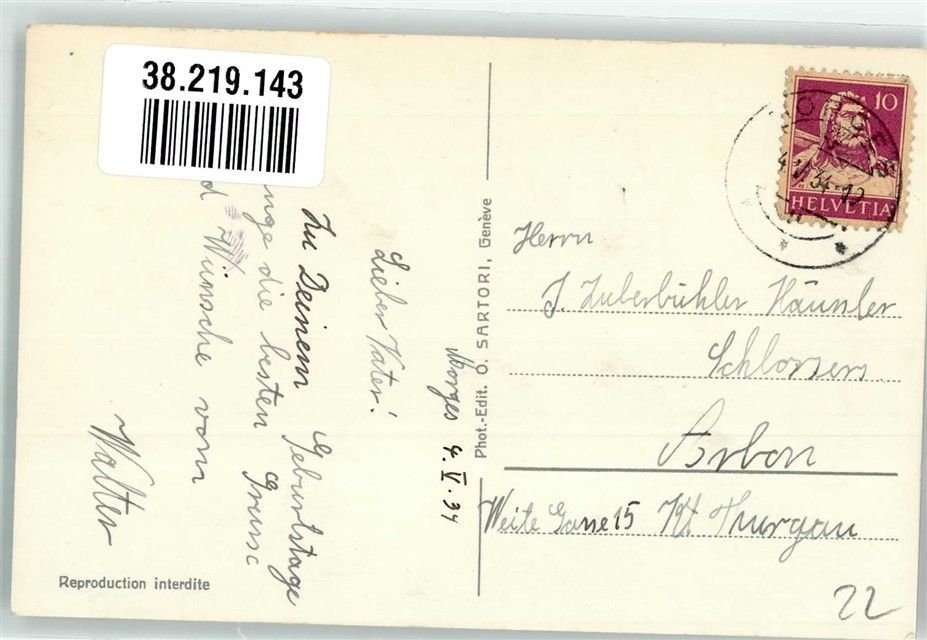 38.219.143
Morges 4. V. 34
Lieber Vater!
Zu Deinem Geburtstage
die besten Grüsse
Wünsche vom
Walter
Reproduction interdite
Phot.-Edit. O. SARTORI, Genève
10
HELVETIA
MORGES
Herrn
J. Zuberbühler Häussler
Schlosserei
Arbon
Weite Gasse 15 Kt. Thurgau
22